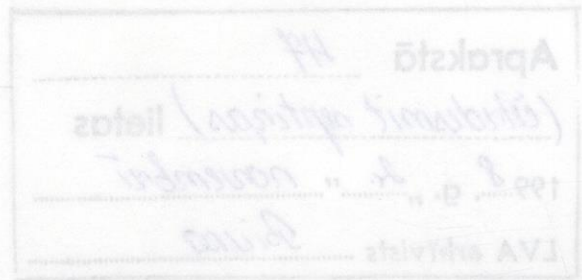 Aprakstā 47
(četrdesmit septiņas) lietas
1998. g. „ " novembrī
LVA arhīvists